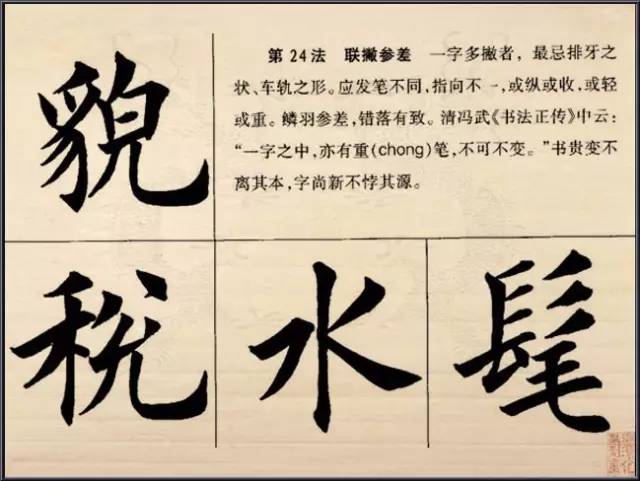 貌
第24法 联撇参差 一字多撇者，最忌排牙之
状、车轨之形。应发笔不同，指向不一，或纵或收，或轻
或重。鳞羽参差，错落有致。清冯武《书法正传》中云：
“一字之中，亦有重(chong)笔，不可不变。”书贵变不
离其本，字尚新不悖其源。
税 水 髦